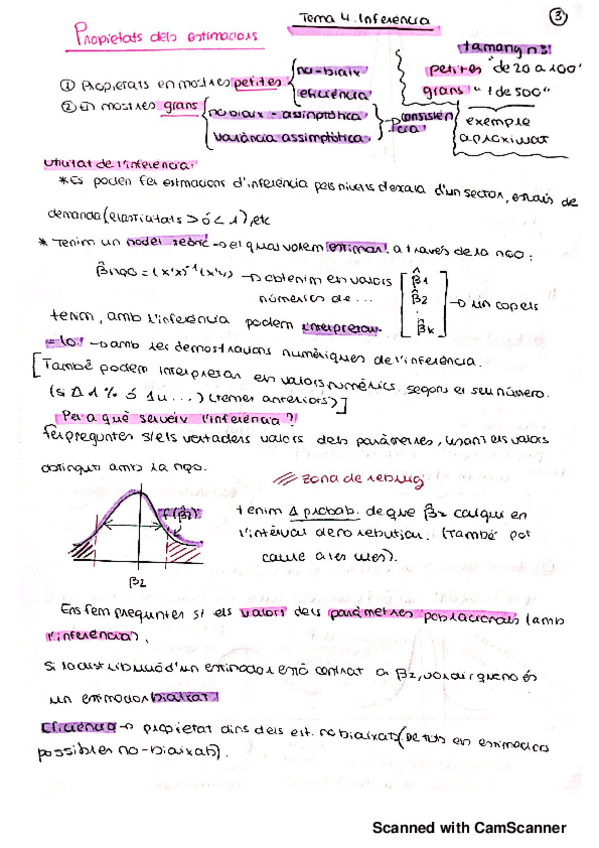 Tema 4. Inferència
3
Propietats dels estimadors
tamany n ßi
① Propietats en mostres petites
no-biaix
eficiència
petites "de 20 a 100"
grans "+ de 500"
② En mostres grans
no biaix - assimptòtica
variància assimptòtica
consistència
exemple
aproximat
Utilitat de l'inferència:
*Es poden fer estimacions d'inferència pels nivells d'escala d'un sector, estudis de
demanda (elasticitats > ó < 1), etc
* Tenim un model teòric → el qual volem estimar a través de la MQO:
β̂MQO = (x'x)⁻¹(x'y) → obtenim els valors
numèrics de ...
β̂1
β̂2
β̂k
→ un cop els
tenim, amb l'inferència podem interpretar-
los → amb les demostracions numèriques de l'inferència.
[També podem interpretar els valors numèrics segons el seu número.
(si Δ 1% ó 1u...) (temes anteriors)]
Per a què serveix l'inferència?
Fer preguntes s/els vertaders valors dels paràmetres, usant els valors
obtinguts amb la MQO.
zona de rebuig
f(β̂2)
β2
tenim Δ probab. de que β2 caigui en
l'interval de no rebutjar. (També pot
caure a les cues).
Ens fem preguntes si els valors dels paràmetres poblacionals (amb
l'inferència).
Si la distribució d'un estimador està centrat a β2, vol dir que no és
un estimador biaixat!
Eficiència → propietat dins dels est. no biaixats (De tots els estimadors
possibles no-biaixats).
Scanned with CamScanner